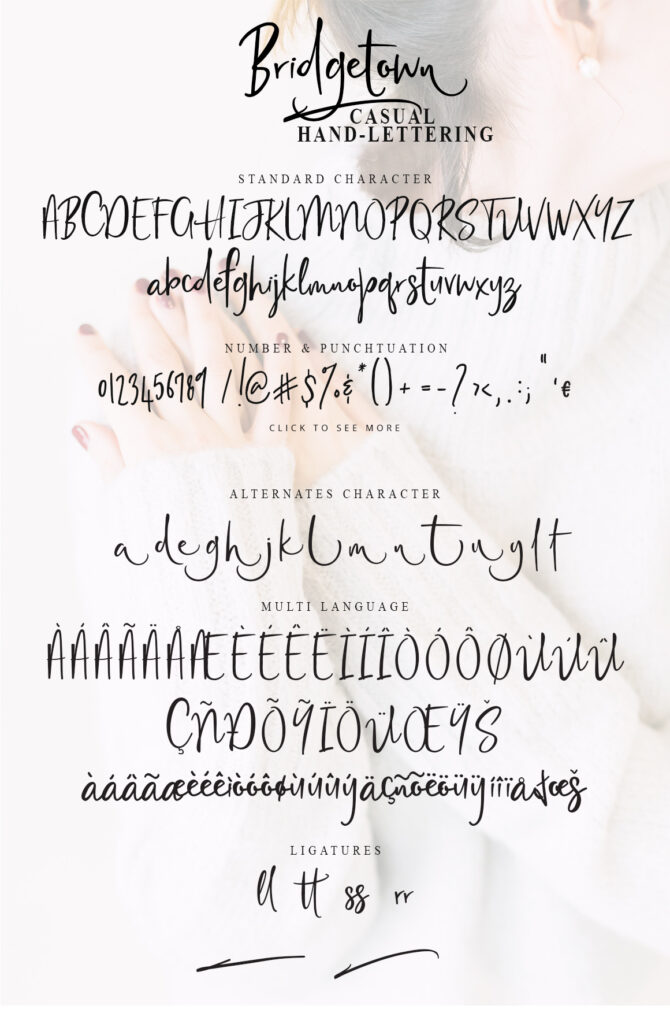 Bridgetown
CASUAL
HAND-LETTERING
STANDARD CHARACTER
ABCDEFGHIJKLMNOPQRSTUVWXYZ
abcdefghijklmnopqrstuvwxyz
NUMBER & PUNCHTUATION
0123456789 /!@#$%&*()+=-?><,.:;"'€
CLICK TO SEE MORE
ALTERNATES CHARACTER
a d e g h j k l m n t u y l t
MULTI LANGUAGE
ÀÁÂÃÄÅÆÈÉÊËÌÍÎÒÓÔØÙÚÛ
ÇÑÐÕÝÏÖÜŒŸŠ
LIGATURES
ll tt ss rr